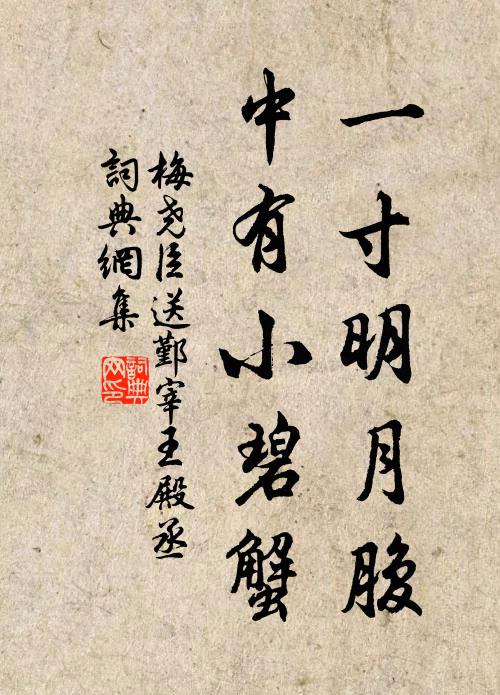 一寸明月腹
中有小碧蟹
梅尧臣送鄞宰王殿丞
詞典網集
詞典
网印